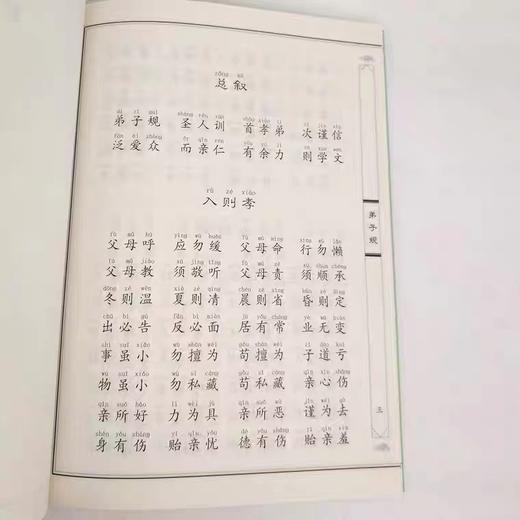 zǒng xù
总叙
dì zǐ guī shèng rén xùn shǒu xiào tì cì jǐn xìn
弟子规 圣人训 首孝弟 次谨信
fàn ài zhòng ér qīn rén yǒu yú lì zé xué wén
泛爱众 而亲仁 有余力 则学文
rù zé xiào
入则孝
fù mǔ hū yìng wù huǎn fù mǔ mìng xíng wù lǎn
父母呼 应勿缓 父母命 行勿懒
fù mǔ jiào xū jìng tīng fù mǔ zé xū shùn chéng
父母教 须敬听 父母责 须顺承
dōng zé wēn xià zé qìng chén zé xǐng hūn zé dìng
冬则温 夏则凊 晨则省 昏则定
chū bì gào fǎn bì miàn jū yǒu cháng yè wú biàn
出必告 反必面 居有常 业无变
shì suī xiǎo wù shàn wéi gǒu shàn wéi zǐ dào kuī
事虽小 勿擅为 苟擅为 子道亏
wù suī xiǎo wù sī cáng gǒu sī cáng qīn xīn shāng
物虽小 勿私藏 苟私藏 亲心伤
qīn suǒ hào lì wèi jù qīn suǒ wù jǐn wèi qù
亲所好 力为具 亲所恶 谨为去
shēn yǒu shāng yí qīn yōu dé yǒu shāng yí qīn xiū
身有伤 贻亲忧 德有伤 贻亲羞
弟子规
三